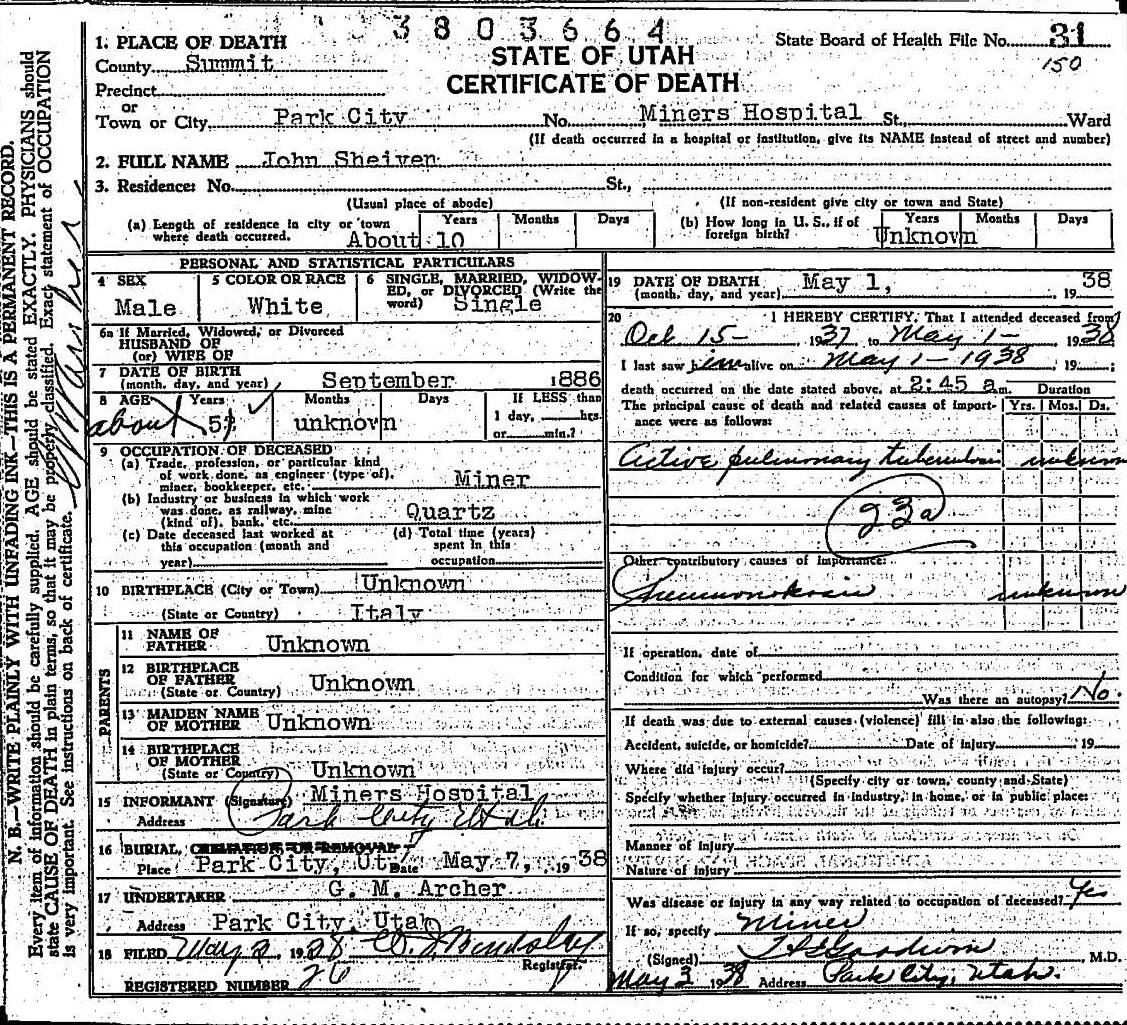 3803664
1. PLACE OF DEATH
STATE OF UTAH
CERTIFICATE OF DEATH
State Board of Health File No. 31
150
County Summit
Precinct
or
Town or City Park City No. Miners Hospital St. Ward
(If death occurred in a hospital or institution, give its NAME instead of street and number)
2. FULL NAME John Sheiven
3. Residence: No. St.,
(Usual place of abode) (If non-resident give city or town and State)
(a) Length of residence in city or town where death occurred. Years Months Days
About 10
(b) How long in U. S., if of foreign birth? Years Months Days
Unknown
PERSONAL AND STATISTICAL PARTICULARS
4 SEX
Male
5 COLOR OR RACE
White
6 SINGLE, MARRIED, WIDOWED, or DIVORCED (Write the word) Single
6a If Married, Widowed, or Divorced
HUSBAND OF
(or) WIFE OF
7 DATE OF BIRTH
(month, day, and year) September 1886
8 AGE Years Months Days If LESS than
1 day, hrs.
or min.?
about 51 unknown
9 OCCUPATION OF DECEASED
(a) Trade, profession, or particular kind
of work done, as engineer (type of),
miner, bookkeeper, etc. Miner
(b) Industry or business in which work
was done, as railway, mine
(kind of), bank, etc. Quartz
(c) Date deceased last worked at
this occupation (month and
year)
(d) Total time (years)
spent in this
occupation
10 BIRTHPLACE (City or Town) Unknown
(State or Country) Italy
PARENTS
11 NAME OF
FATHER Unknown
12 BIRTHPLACE
OF FATHER
(State or Country) Unknown
13 MAIDEN NAME
OF MOTHER Unknown
14 BIRTHPLACE
OF MOTHER
(State or Country) Unknown
15 INFORMANT (Signature) Miners Hospital
Address Park City Utah
16 BURIAL, CREMATION OR REMOVAL
Place Park City, Ut. Date May 7, 1938
17 UNDERTAKER G. M. Archer
Address Park City, Utah
18 FILED May 2, 1938
Registrar.
REGISTERED NUMBER 26
19 DATE OF DEATH
(month, day, and year) May 1, 1938
20 I HEREBY CERTIFY, That I attended deceased from
Oct 15- 1937 to May 1- 1938
I last saw him alive on May 1- 1938 19 ;
death occurred on the date stated above, at 2:45 a m. Duration
The principal cause of death and related causes of importance were as follows: Yrs. Mos. Ds.
Active pulmonary tuberculosis unknown
23a
Other contributory causes of importance:
Pneumonokosis unknown
If operation, date of
Condition for which performed
Was there an autopsy? No.
If death was due to external causes (violence) fill in also the following:
Accident, suicide, or homicide? Date of injury 19
Where did injury occur?
(Specify city or town, county and State)
Specify whether injury occurred in industry, in home, or in public place:
Manner of injury
Nature of injury
Was disease or injury in any way related to occupation of deceased? Yes
If so, specify Miner
(Signed) M.D.
May 3 1938 Address Park City, Utah.
N. B.—WRITE PLAINLY WITH UNFADING INK—THIS IS A PERMANENT RECORD.
Every item of information should be carefully supplied. AGE should be stated EXACTLY. PHYSICIANS should
state CAUSE OF DEATH in plain terms, so that it may be properly classified. Exact statement of OCCUPATION
is very important. See instructions on back of certificate.